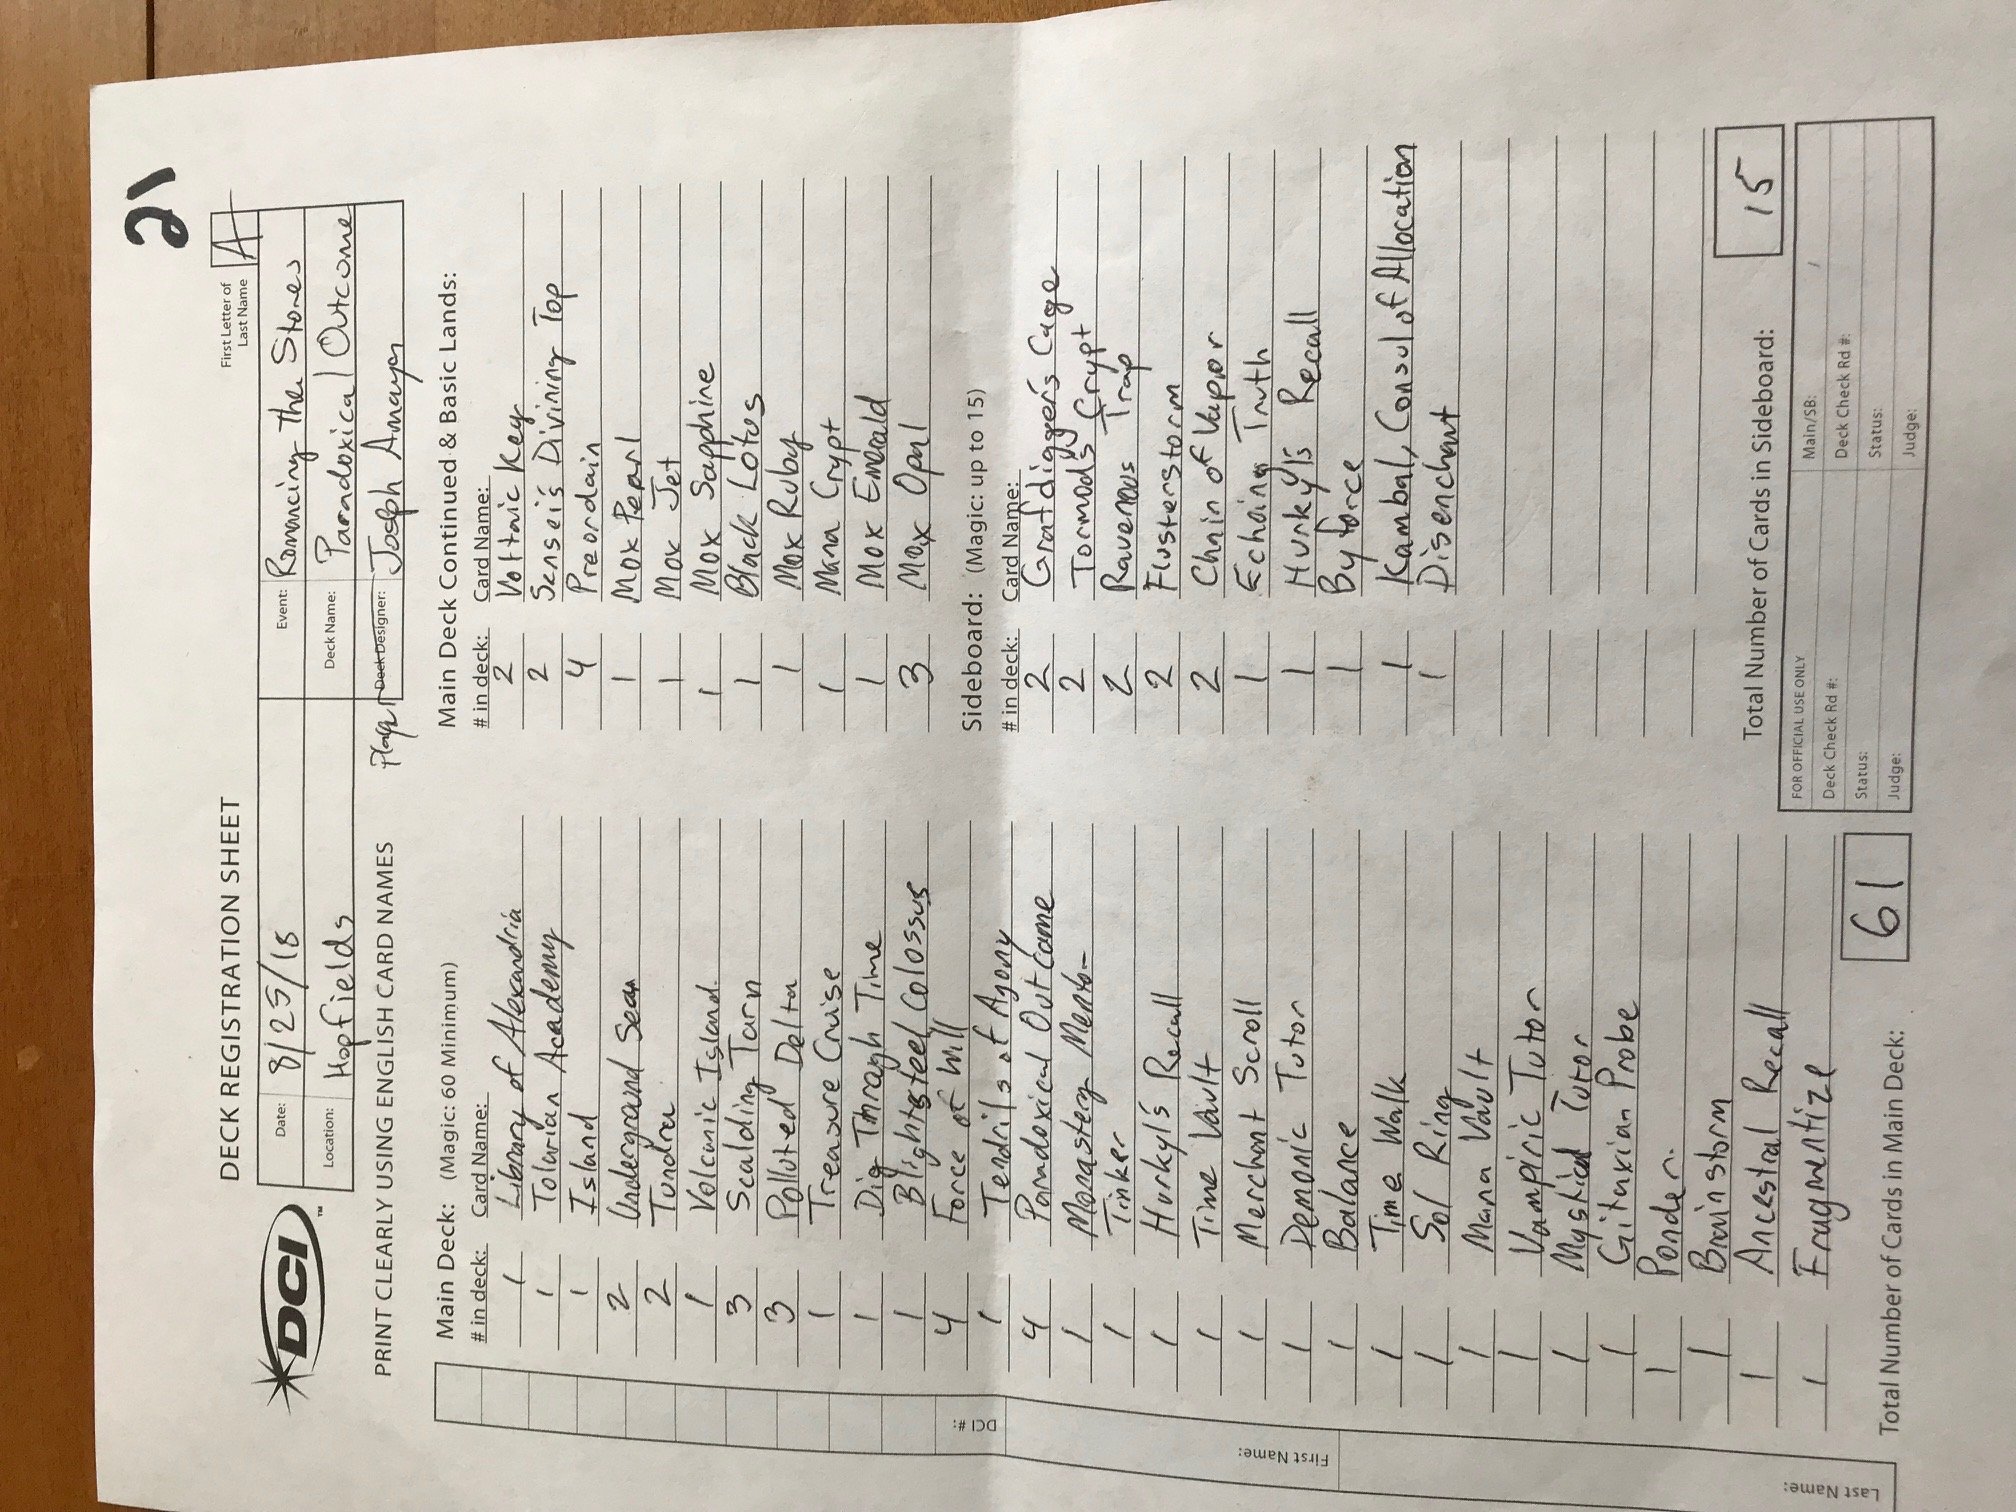 21
DECK REGISTRATION SHEET
First Letter of
Last Name
A
DCI
TM
Date: 8/25/18
Event: Romancing The Stones
Location: Hopfields
Deck Name: Paradoxical Outcome
PRINT CLEARLY USING ENGLISH CARD NAMES
Player Deck Designer: Joseph Amaya
Main Deck: (Magic: 60 Minimum)
# in deck: Card Name:
1 Library of Alexandria
1 Tolarian Academy
1 Island
2 Underground Sea
2 Tundra
1 Volcanic Island.
3 Scalding Tarn
3 Polluted Delta
1 Treasure Cruise
1 Dig Through Time
1 Blightsteel Colossus
4 Force of Will
1 Tendrils of Agony
4 Paradoxical Outcome
1 Monastery Mentor
1 Tinker
1 Hurkyl's Recall
1 Time Vault
1 Merchant Scroll
1 Demonic Tutor
1 Balance
1 Time Walk
1 Sol Ring
1 Mana Vault
1 Vampiric Tutor
1 Mystical Tutor
1 Gitaxian Probe
1 Ponder.
1 Brainstorm
1 Ancestral Recall
1 Fragmentize
Total Number of Cards in Main Deck: 61
Main Deck Continued & Basic Lands:
# in deck: Card Name:
2 Voltaic Key
2 Sensei's Divining Top
4 Preordain
1 Mox Pearl
1 Mox Jet
1 Mox Sapphire
1 Black Lotus
1 Mox Ruby
1 Mana Crypt
1 Mox Emerald
3 Mox Opal
Sideboard: (Magic: up to 15)
# in deck: Card Name:
2 Grafdigger's Cage
2 Tormod's Crypt
2 Ravenous Trap
2 Flusterstorm
2 Chain of Vapor
1 Echoing Truth
1 Hurkyl's Recall
1 By force
1 Kambal, Consul of Allocation
1 Disenchant
Total Number of Cards in Sideboard: 15
FOR OFFICIAL USE ONLY
Main/SB: /
Deck Check Rd #:
Deck Check Rd #:
Status:
Status:
Judge:
Judge:
DCI #:
First Name:
Last Name: